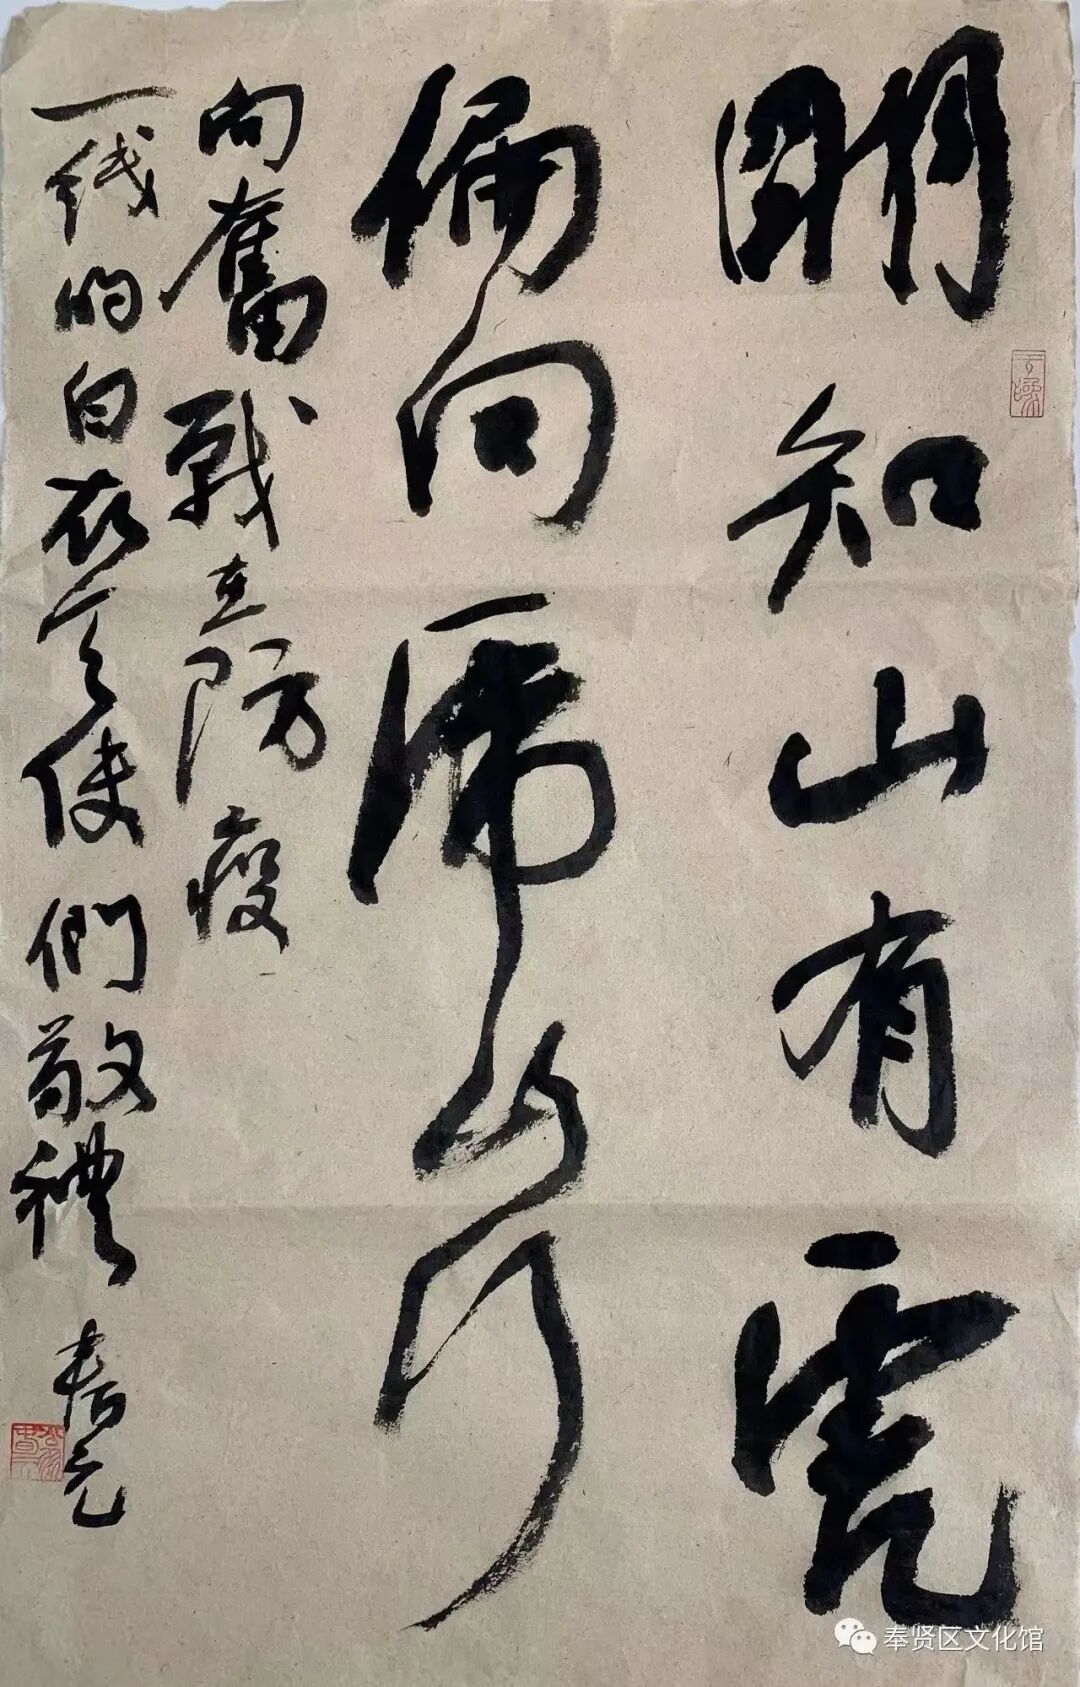 明知山有虎
偏向虎山行
向奮戰在防疫
一线的白衣天使們敬禮
春元
奉贤区文化馆